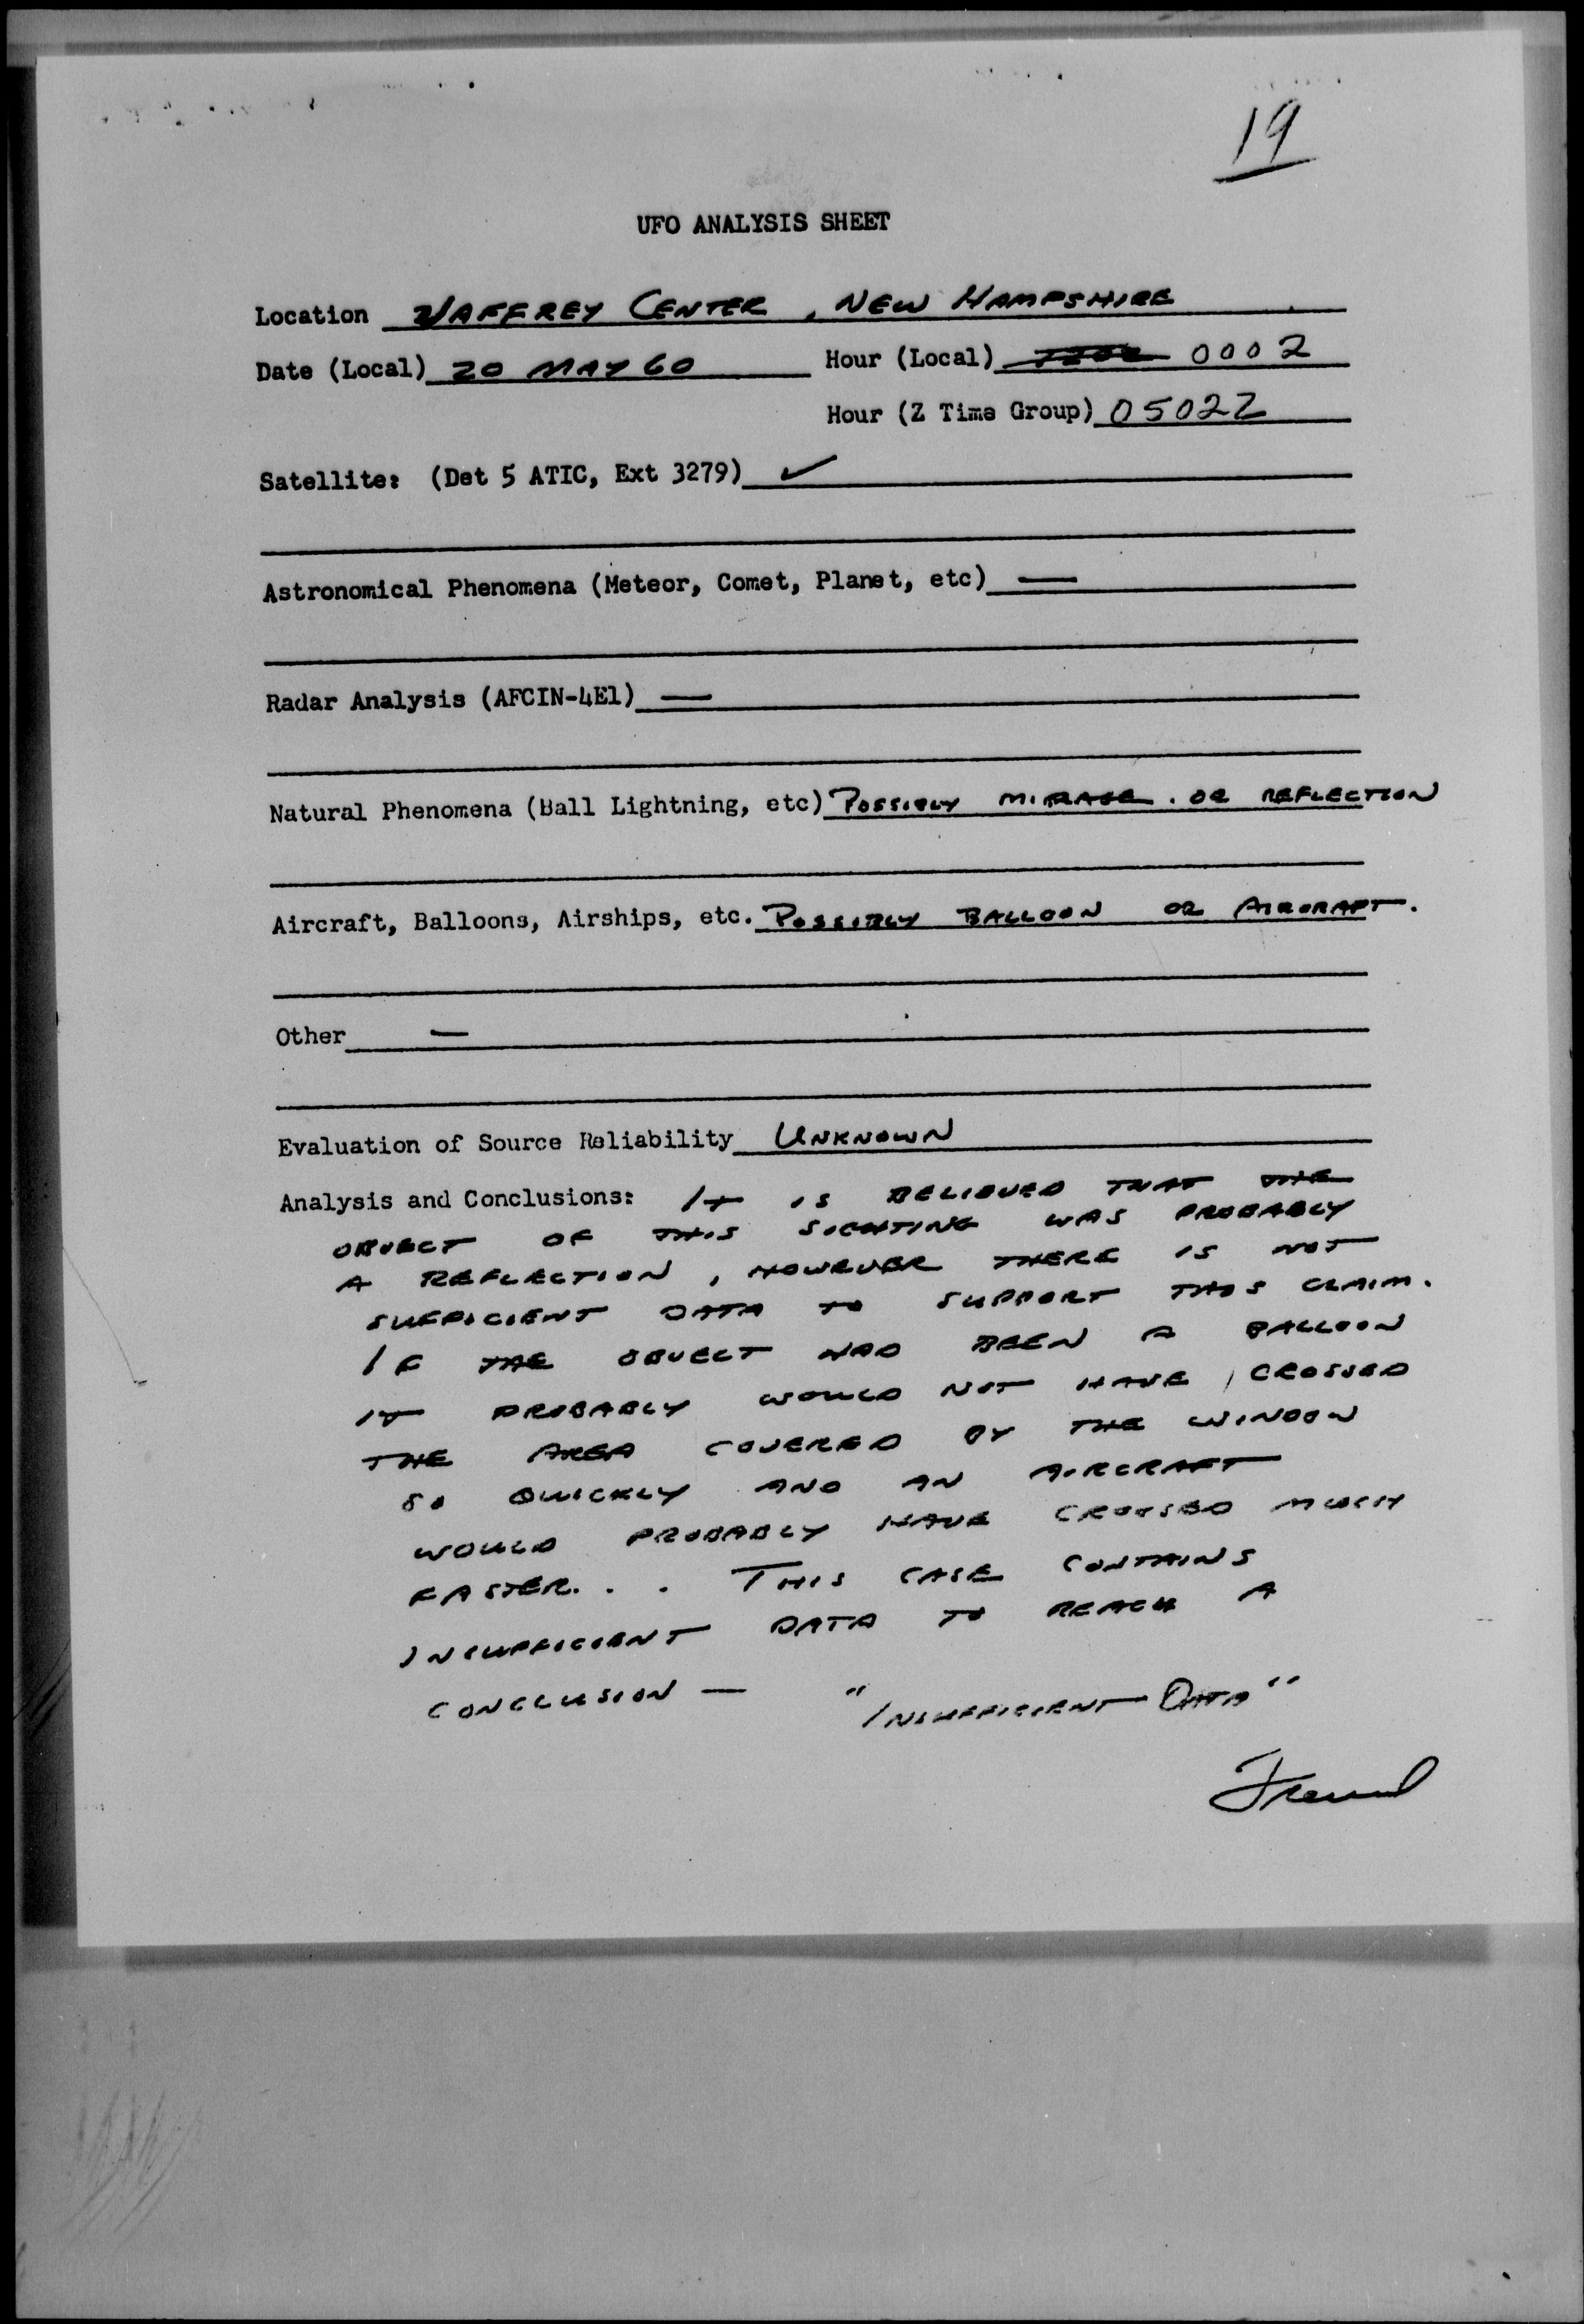 19
UFO ANALYSIS SHEET
Location JAFFREY CENTER, NEW HAMPSHIRE
Date (Local) 20 MAY 60 Hour (Local) 0002
Hour (Z Time Group) 0502Z
Satellite: (Det 5 ATIC, Ext 3279) ✓
Astronomical Phenomena (Meteor, Comet, Planet, etc) —
Radar Analysis (AFCIN-4E1) —
Natural Phenomena (Ball Lightning, etc) POSSIBLY MIRAGE. OR REFLECTION
Aircraft, Balloons, Airships, etc. POSSIBLY BALLOON OR AIRCRAFT.
Other —
Evaluation of Source Reliability UNKNOWN
Analysis and Conclusions: IT IS BELIEVED THAT THE
OBJECT OF THIS SIGHTING WAS PROBABLY
A REFLECTION, HOWEVER THERE IS NOT
SUFFICIENT DATA TO SUPPORT THIS CLAIM.
IF THE OBJECT HAD BEEN A BALLOON
IT PROBABLY WOULD NOT HAVE CROSSED
THE AREA COVERED BY THE WINDOW
SO QUICKLY AND AN AIRCRAFT
WOULD PROBABLY HAVE CROSSED MUCH
FASTER. . . THIS CASE CONTAINS
INSUFFICIENT DATA TO REACH A
CONCLUSION — "INSUFFICIENT DATA"